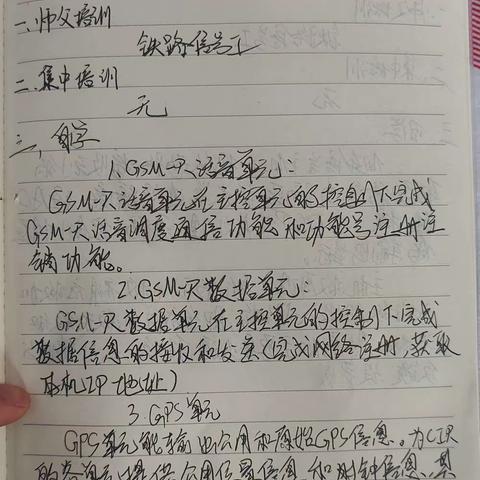 一、师父培训
铁路信号工
二、集中培训
无
三、自学
1.GSM-R话音单元:
GSM-R话音单元在主控单元的控制下完成
GSM-R话音调度通信功能和功能号注册注
销功能。
2.GSM-R数据单元:
GSM-R数据单元在主控单元的控制下完成
数据信息的接收和发送(完成网络注册,获取
本机IP地址)
3.GPS单元
GPS单元能输出公用和原始GPS信息。为CIR
的各单元提供公用位置信息和时钟信息,其